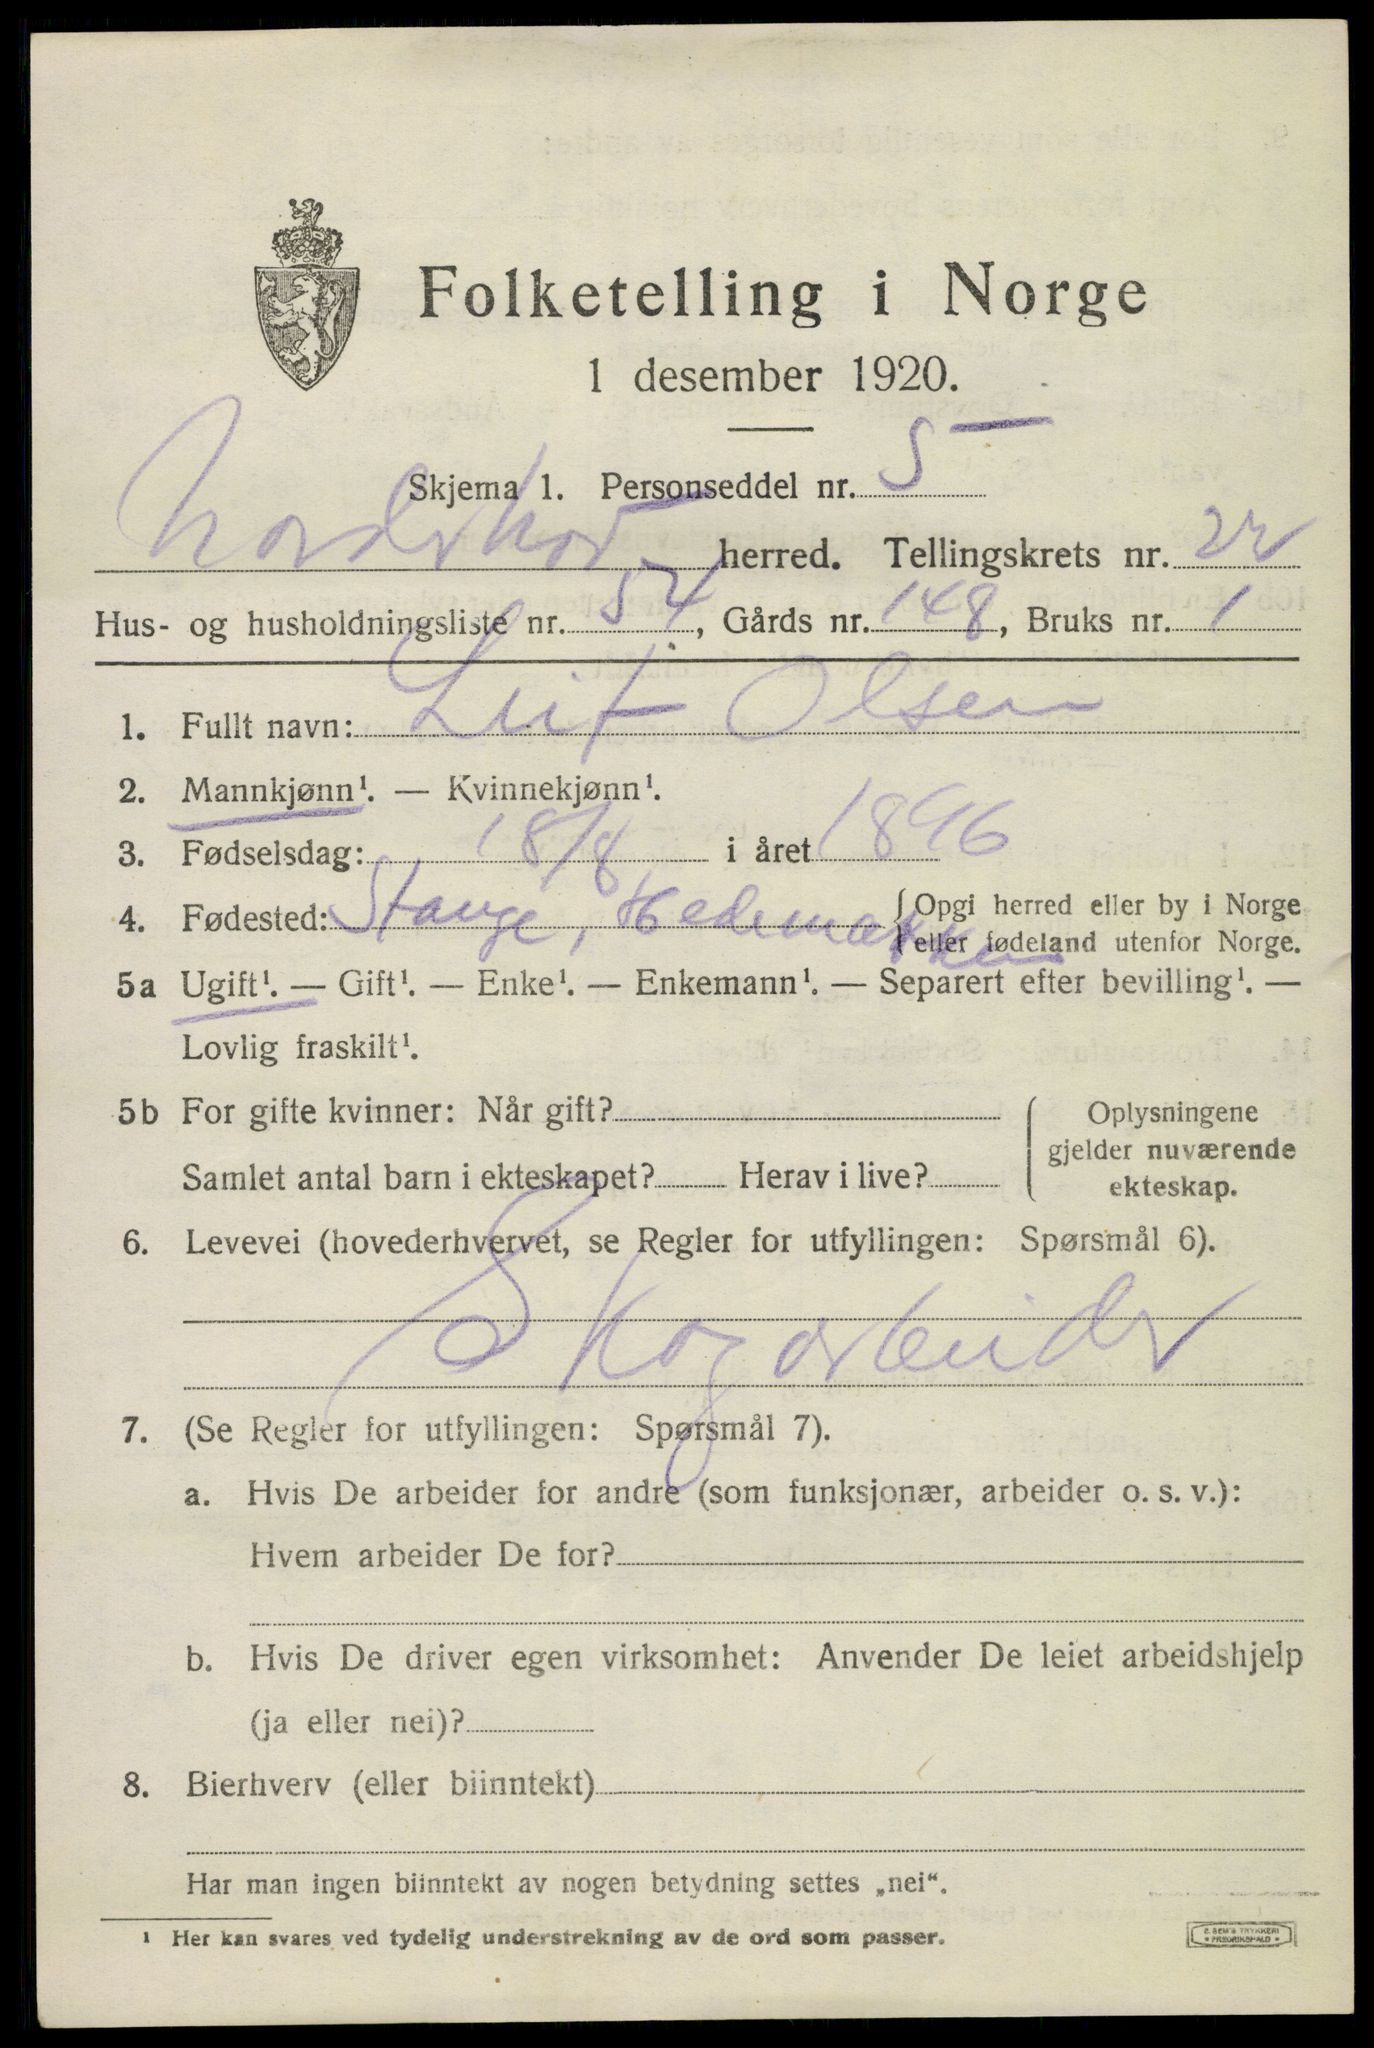 Folketelling i Norge
1 desember 1920.
Skjema 1. Personseddel nr. 5
Norderhov herred. Tellingskrets nr. 22
Hus- og husholdningsliste nr. 54, Gårds nr. 148, Bruks nr. 1
1. Fullt navn: Leif Olsen
2. Mannkjønn¹. — Kvinnekjønn¹.
3. Fødselsdag: 18/8 i året 1896
4. Fødested: Stange, Hedemarken {Opgi herred eller by i Norge
eller fødeland utenfor Norge.
5a Ugift¹. — Gift¹. — Enke¹. — Enkemann¹. — Separert efter bevilling¹. —
Lovlig fraskilt¹.
5b For gifte kvinner: Når gift? Oplysningene
gjelder nuværende
Samlet antal barn i ekteskapet? Herav i live? ekteskap.
6. Levevei (hovederhvervet, se Regler for utfyllingen: Spørsmål 6).
Skogarbeider
7. (Se Regler for utfyllingen: Spørsmål 7).
a. Hvis De arbeider for andre (som funksjonær, arbeider o. s. v.):
Hvem arbeider De for?
b. Hvis De driver egen virksomhet: Anvender De leiet arbeidshjelp
(ja eller nei)?
8. Bierhverv (eller biinntekt)
Har man ingen biinntekt av nogen betydning settes „nei“.
¹ Her kan svares ved tydelig understrekning av de ord som passer.
E. SEM'S TRYKKERI
FREDRIKSHALD